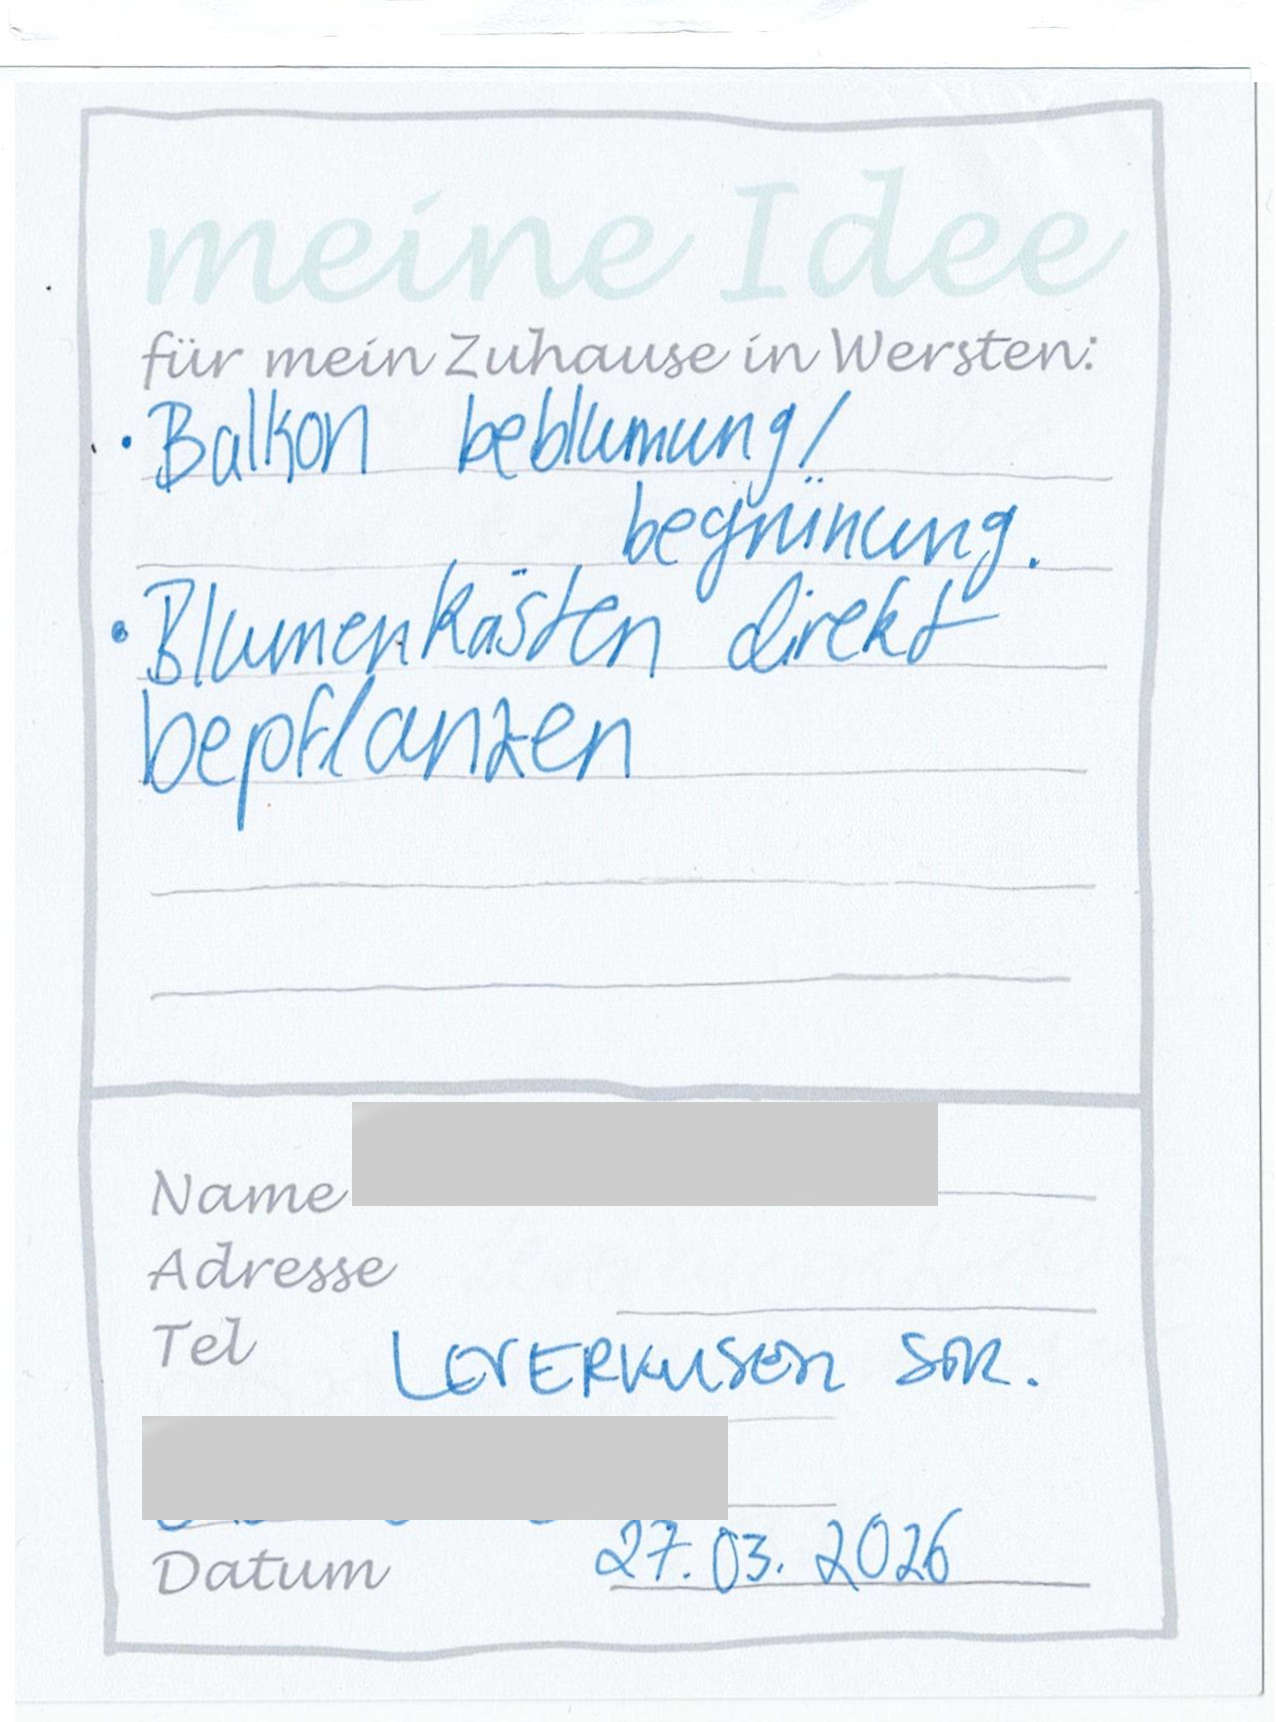 meine Idee
für mein Zuhause in Wersten:
• Balkon beblumung/
begrünung.
• Blumenkästen direkt
bepflanzen
Name
Adresse
Tel
LEVERKUSEN STR.
Datum 27.03.2026